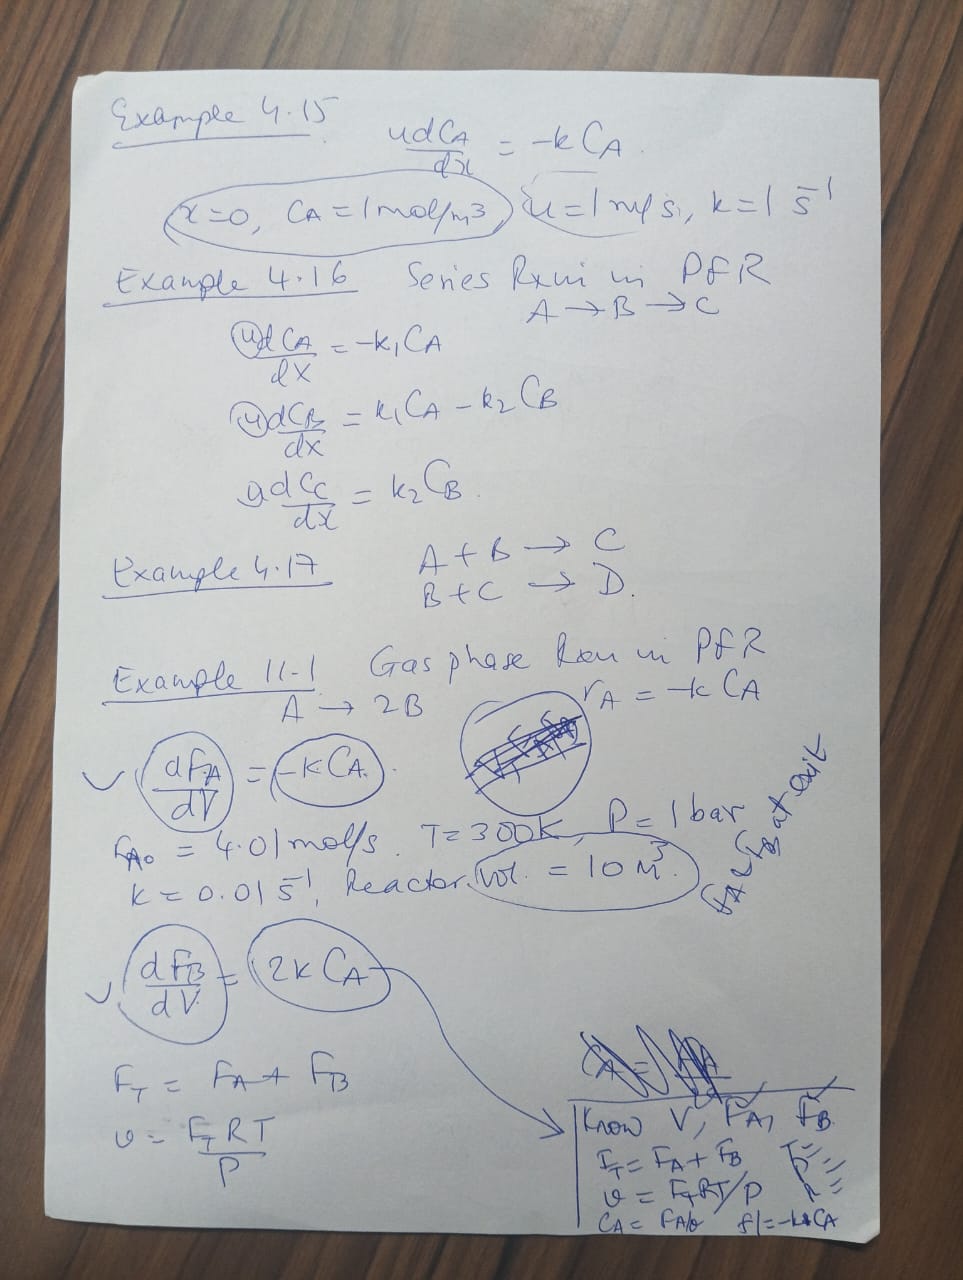 Example 4.15
u dCA/dx = -k CA.
x=0, CA = 1 mol/m3, u=1 m/s, k=1 s-1
Example 4.16 Series Rxn in PFR
A → B → C
u dCA/dx = -k1 CA
u dCB/dx = k1 CA - k2 CB
u dCC/dx = k2 CB.
Example 4.17 A + B → C
B + C → D.
Example 11-1 Gas phase Rxn in PFR
A → 2B rA = -k CA
dFA/dV = -k CA.
FA0 = 4.01 mol/s. T = 300K, P = 1 bar
k = 0.01 s-1, Reactor vol. = 10 m3.
FA & FB at exit
dFB/dV = 2k CA
FT = FA + FB
v = FT RT/P
Know V, FA, FB
FT = FA + FB
v = FT RT/P
CA = FA/v